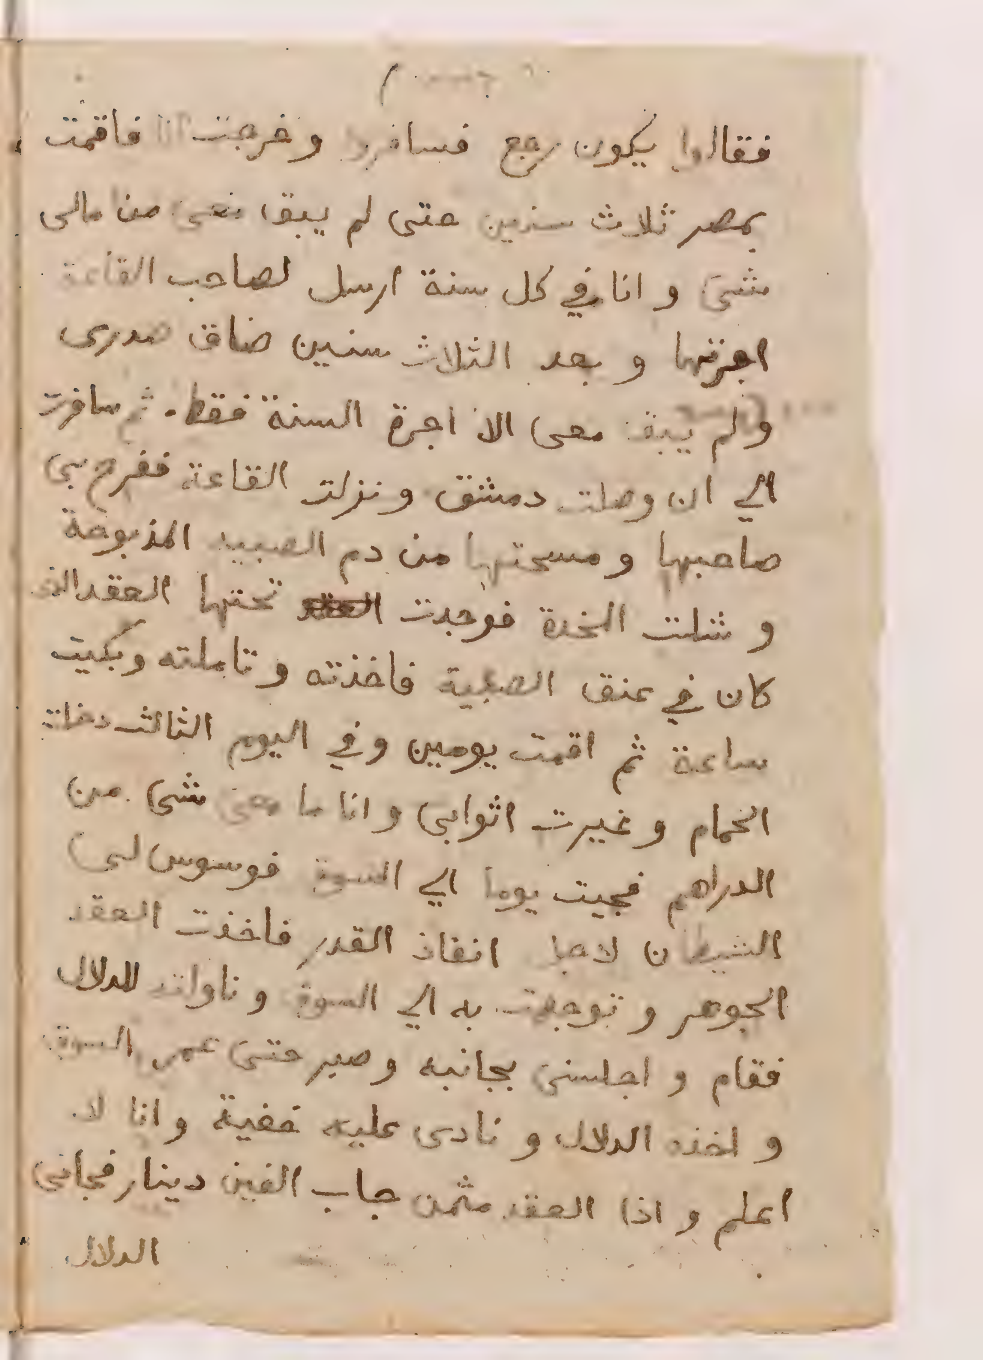 فقالوا يكون رجع فسافروا وخرجت انا فاقمت
بمصر ثلاث سنين حتى لم يبق معى من مالى
شئ و انا في كل سنة ارسل لصاحب القاعة
اجرتها و بعد الثلاث سنين ضاق صدرى
ولم يبق معى الا اجرة السنة فقط ثم سافرت
الي ان وصلت دمشق ونزلت القاعة ففرح بى
صاحبها و مسحتها من دم الصبيه المذبوحة
و شلت المخدة فوجدت تحتها العقد الذى
كان في عنق الصبية فاخذته و تاملته وبكيت
ساعة ثم اقمت يومين وفي اليوم الثالث دخلت
الحمام و غيرت اثوابى و انا ما معى شئ من
الدراهم فجيت يوما الي السوق فوسوس لى
الشيطان لاجل انفاذ القدر فاخذت العقد
الجوهر و توجهت به الي السوق و ناولته للدلال
فقام و اجلسنى بجانبه وصبر حتى عمر السوق
و اخذه الدلال و نادى عليه خفية وانا لا
اعلم و اذا العقد مثمن جاب الفين دينار فجانى
الدلال